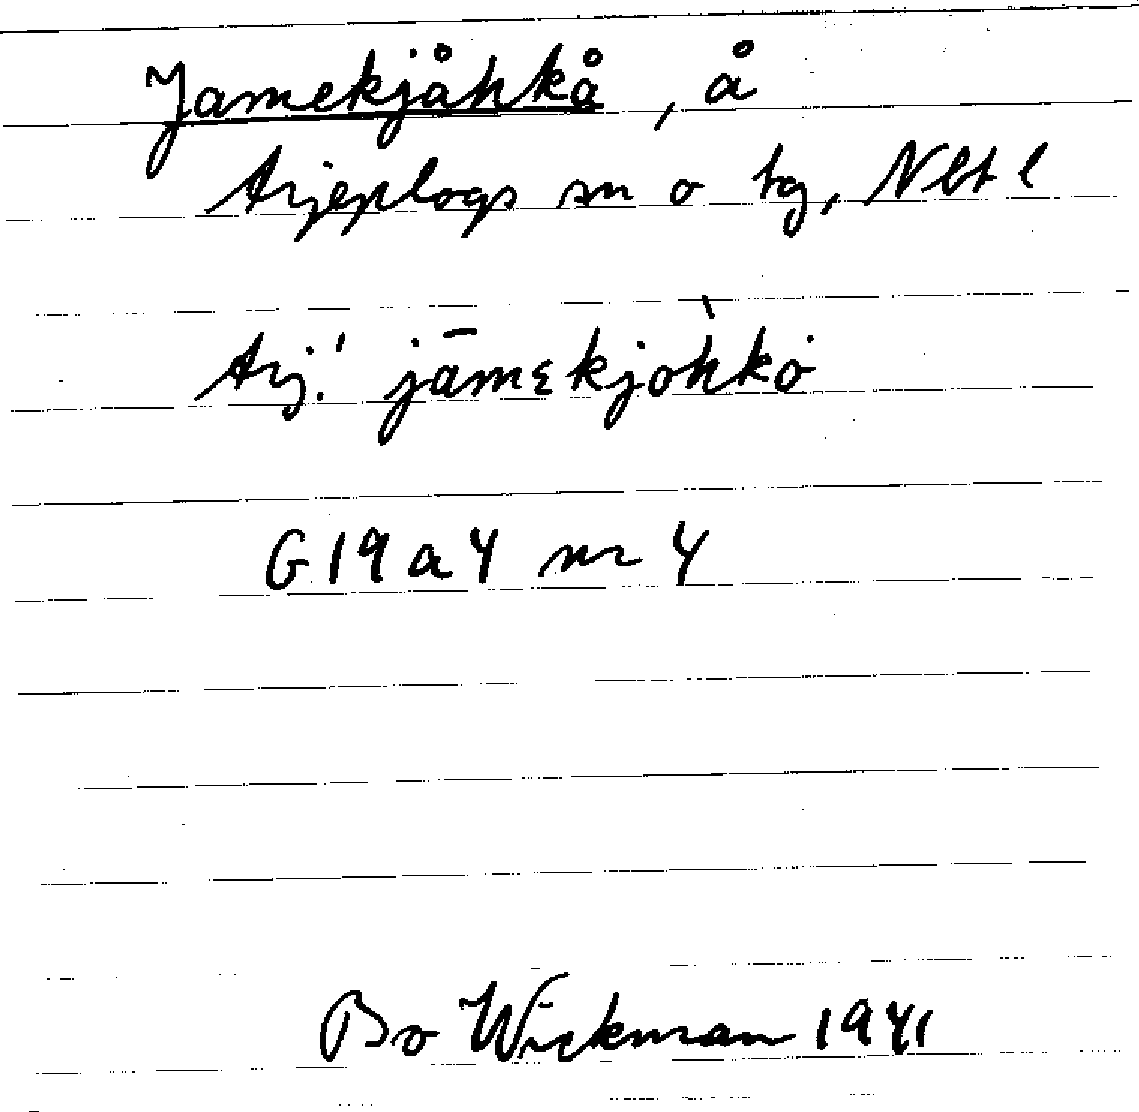 Jamekjåhkå, å
Arjeplogs sn o tg, Nbt l
Arj.' jāmεkjòhkȯ
G 19 a 4 nr 4
Bo Wickman 1941